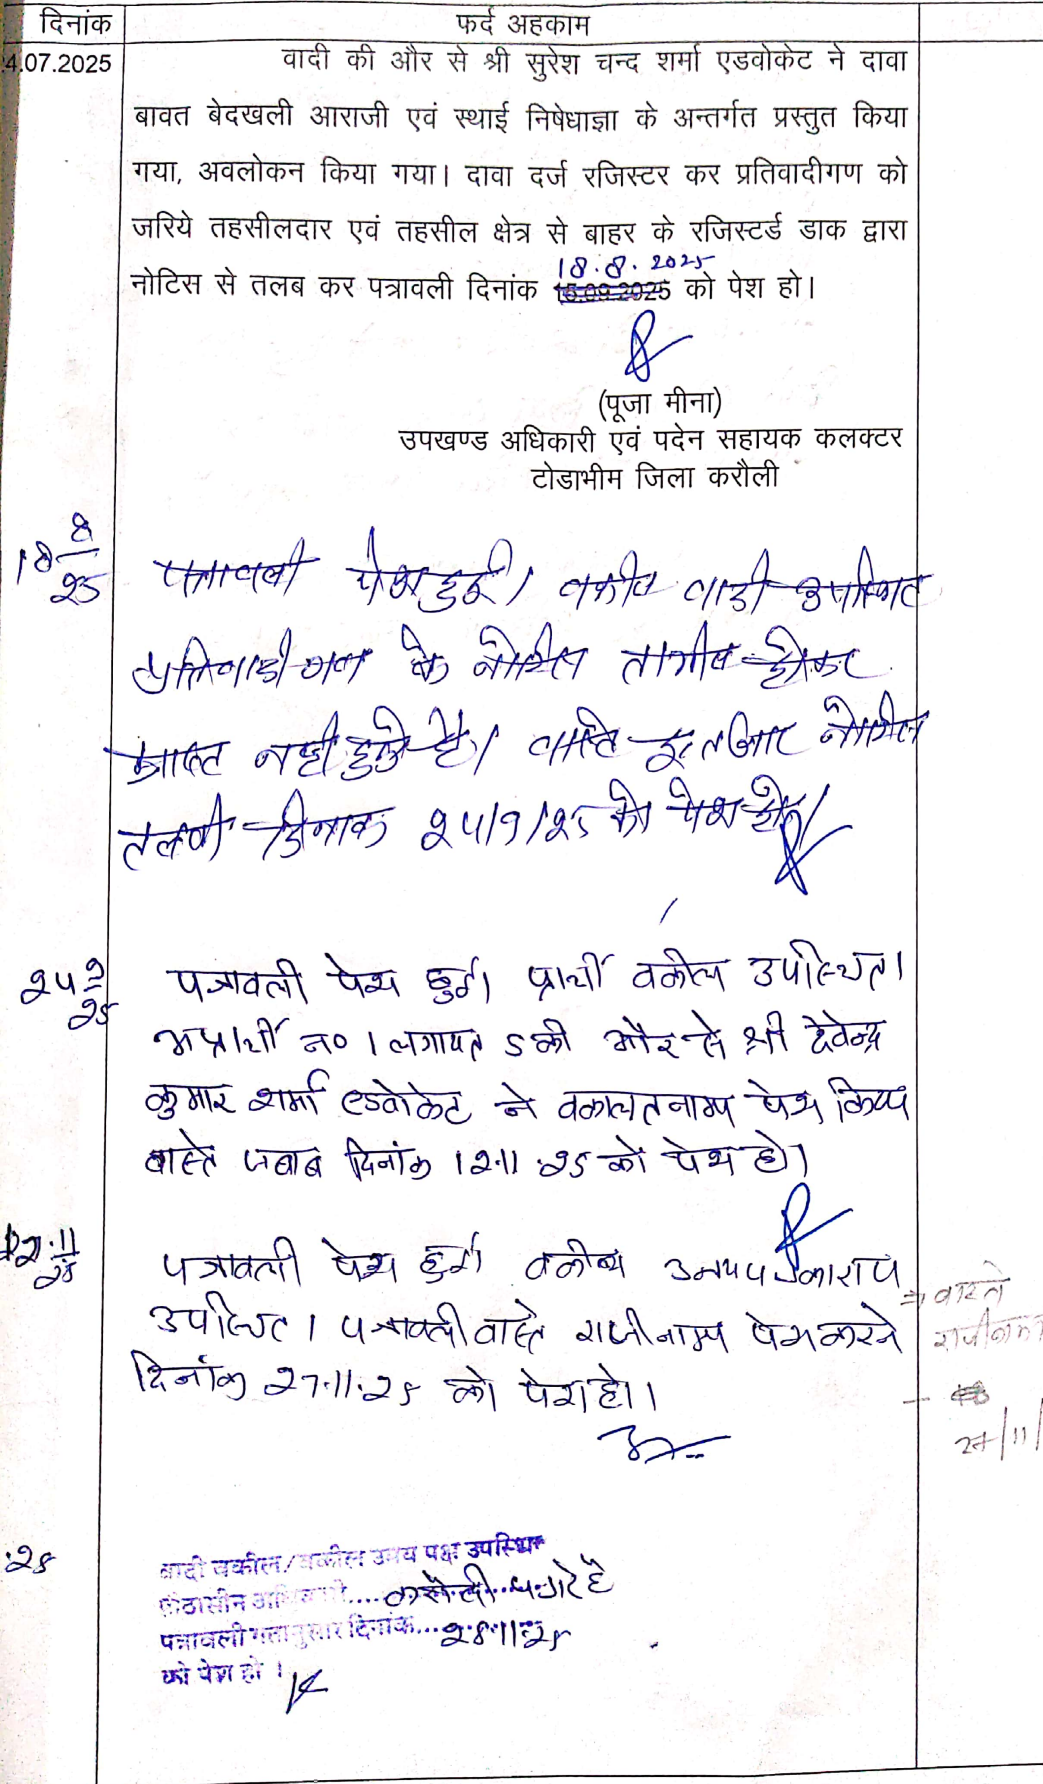 दिनांक फर्द अहकाम
4.07.2025 वादी की और से श्री सुरेश चन्द शर्मा एडवोकेट ने दावा
बावत बेदखली आराजी एवं स्थाई निषेधाज्ञा के अन्तर्गत प्रस्तुत किया
गया, अवलोकन किया गया। दावा दर्ज रजिस्टर कर प्रतिवादीगण को
जरिये तहसीलदार एवं तहसील क्षेत्र से बाहर के रजिस्टर्ड डाक द्वारा
18.8.2025
नोटिस से तलब कर पत्रावली दिनांक 15.09.2025 को पेश हो।
(पूजा मीना)
उपखण्ड अधिकारी एवं पदेन सहायक कलक्टर
टोडाभीम जिला करौली
18 8/25 पत्रावली पेश हुई। वकील वादी उपस्थित
प्रतिवादीगण के नोटिस तामील होकर
प्राप्त नही हुये है। वास्ते इन्तजार नोटिस
तलवी दिनांक २५/9/२5 को पेश हो।
२५ 9/२5 पत्रावली पेश हुई। प्रार्थी वकील उपस्थित।
अप्रार्थी न० 1 लगायत 5 की और से श्री देवेन्द्र
कुमार शर्मा एडवोकेट ने वकालतनामा पेश किया
वास्ते जबाब दिनांक 1२.11.२5 को पेश हो।
1२.11/२5 पत्रावली पेश हुई। वकील उभयपक्षकारान
उपस्थित। पत्रावली वास्ते राजीनामा पेश करने
दिनांक २7.11.२5 को पेश हो।
⇒ वास्ते
राजीनामा
२7/11/
.२5 वादी वकील/वकील उभय पक्ष उपस्थित
पीठासीन अधिकारी.... करौली पधारे है
पत्रावली गतानुसार दिनांक... २8.11.२5
को पेश हो।